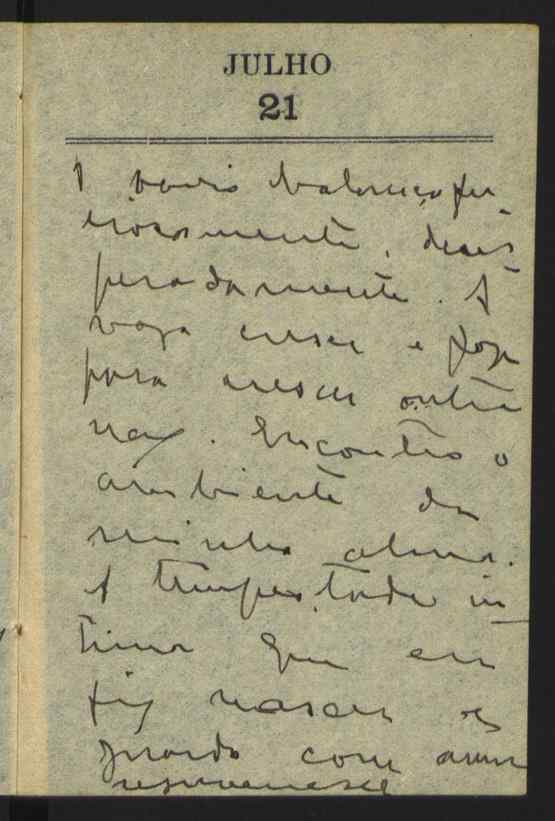 JULHO
21
O navio balouça fu-
riosamente, deses-
peradamente. A
vaga cresce e foge
para crescer outra
vez. Encontro o
ambiente da
minha alma.
A tempestade in-
tima que eu
fiz nascer e
guardo com amor